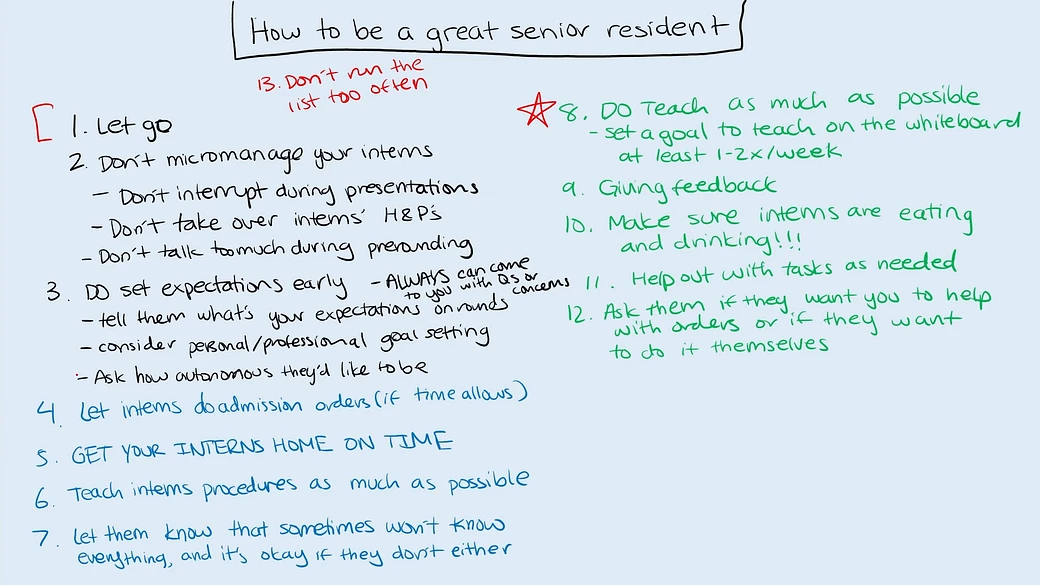 How to be a great senior resident
13. Don't run the
list too often
1. Let go
2. Don't micromanage your interns
- Don't interrupt during presentations
- Don't take over interns' H&P's
- Don't talk too much during prerounding
3. DO set expectations early - ALWAYS can come
to you with Q's or
concerns
- tell them what's your expectations on rounds
- consider personal/professional goal setting
- Ask how autonomous they'd like to be
4. Let interns do admission orders (if time allows)
5. GET YOUR INTERNS HOME ON TIME
6. Teach interns procedures as much as possible
7. Let them know that sometimes won't know
everything, and it's okay if they don't either
8. DO Teach as much as possible
- set a goal to teach on the whiteboard
at least 1-2x/week
9. Giving feedback
10. Make sure interns are eating
and drinking!!!
11. Help out with tasks as needed
12. Ask them if they want you to help
with orders or if they want
to do it themselves